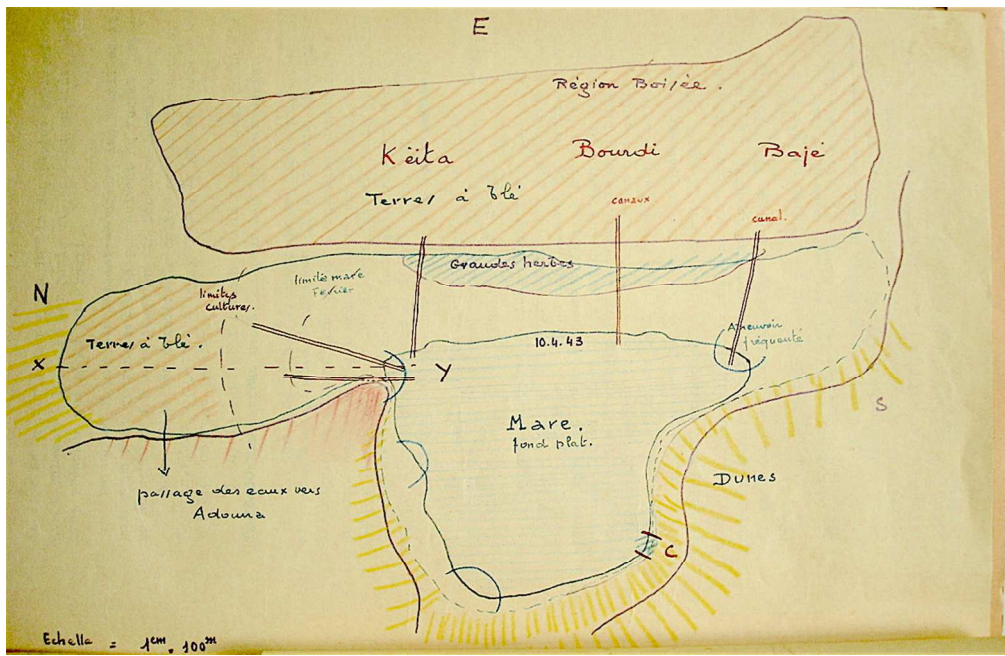 E
Région Boisée.
Këita
Bourdi
Bajé
Terres à blé
canaux
canal.
Grandes herbes
N
limites
cultures.
limite mare
Février
Terres à blé.
10.4.43
Abreuvoir
fréquenté
X
Y
S
Mare.
fond plat.
Dunes
passage des eaux vers
Adouna
C
Echelle = 1cm. 100m